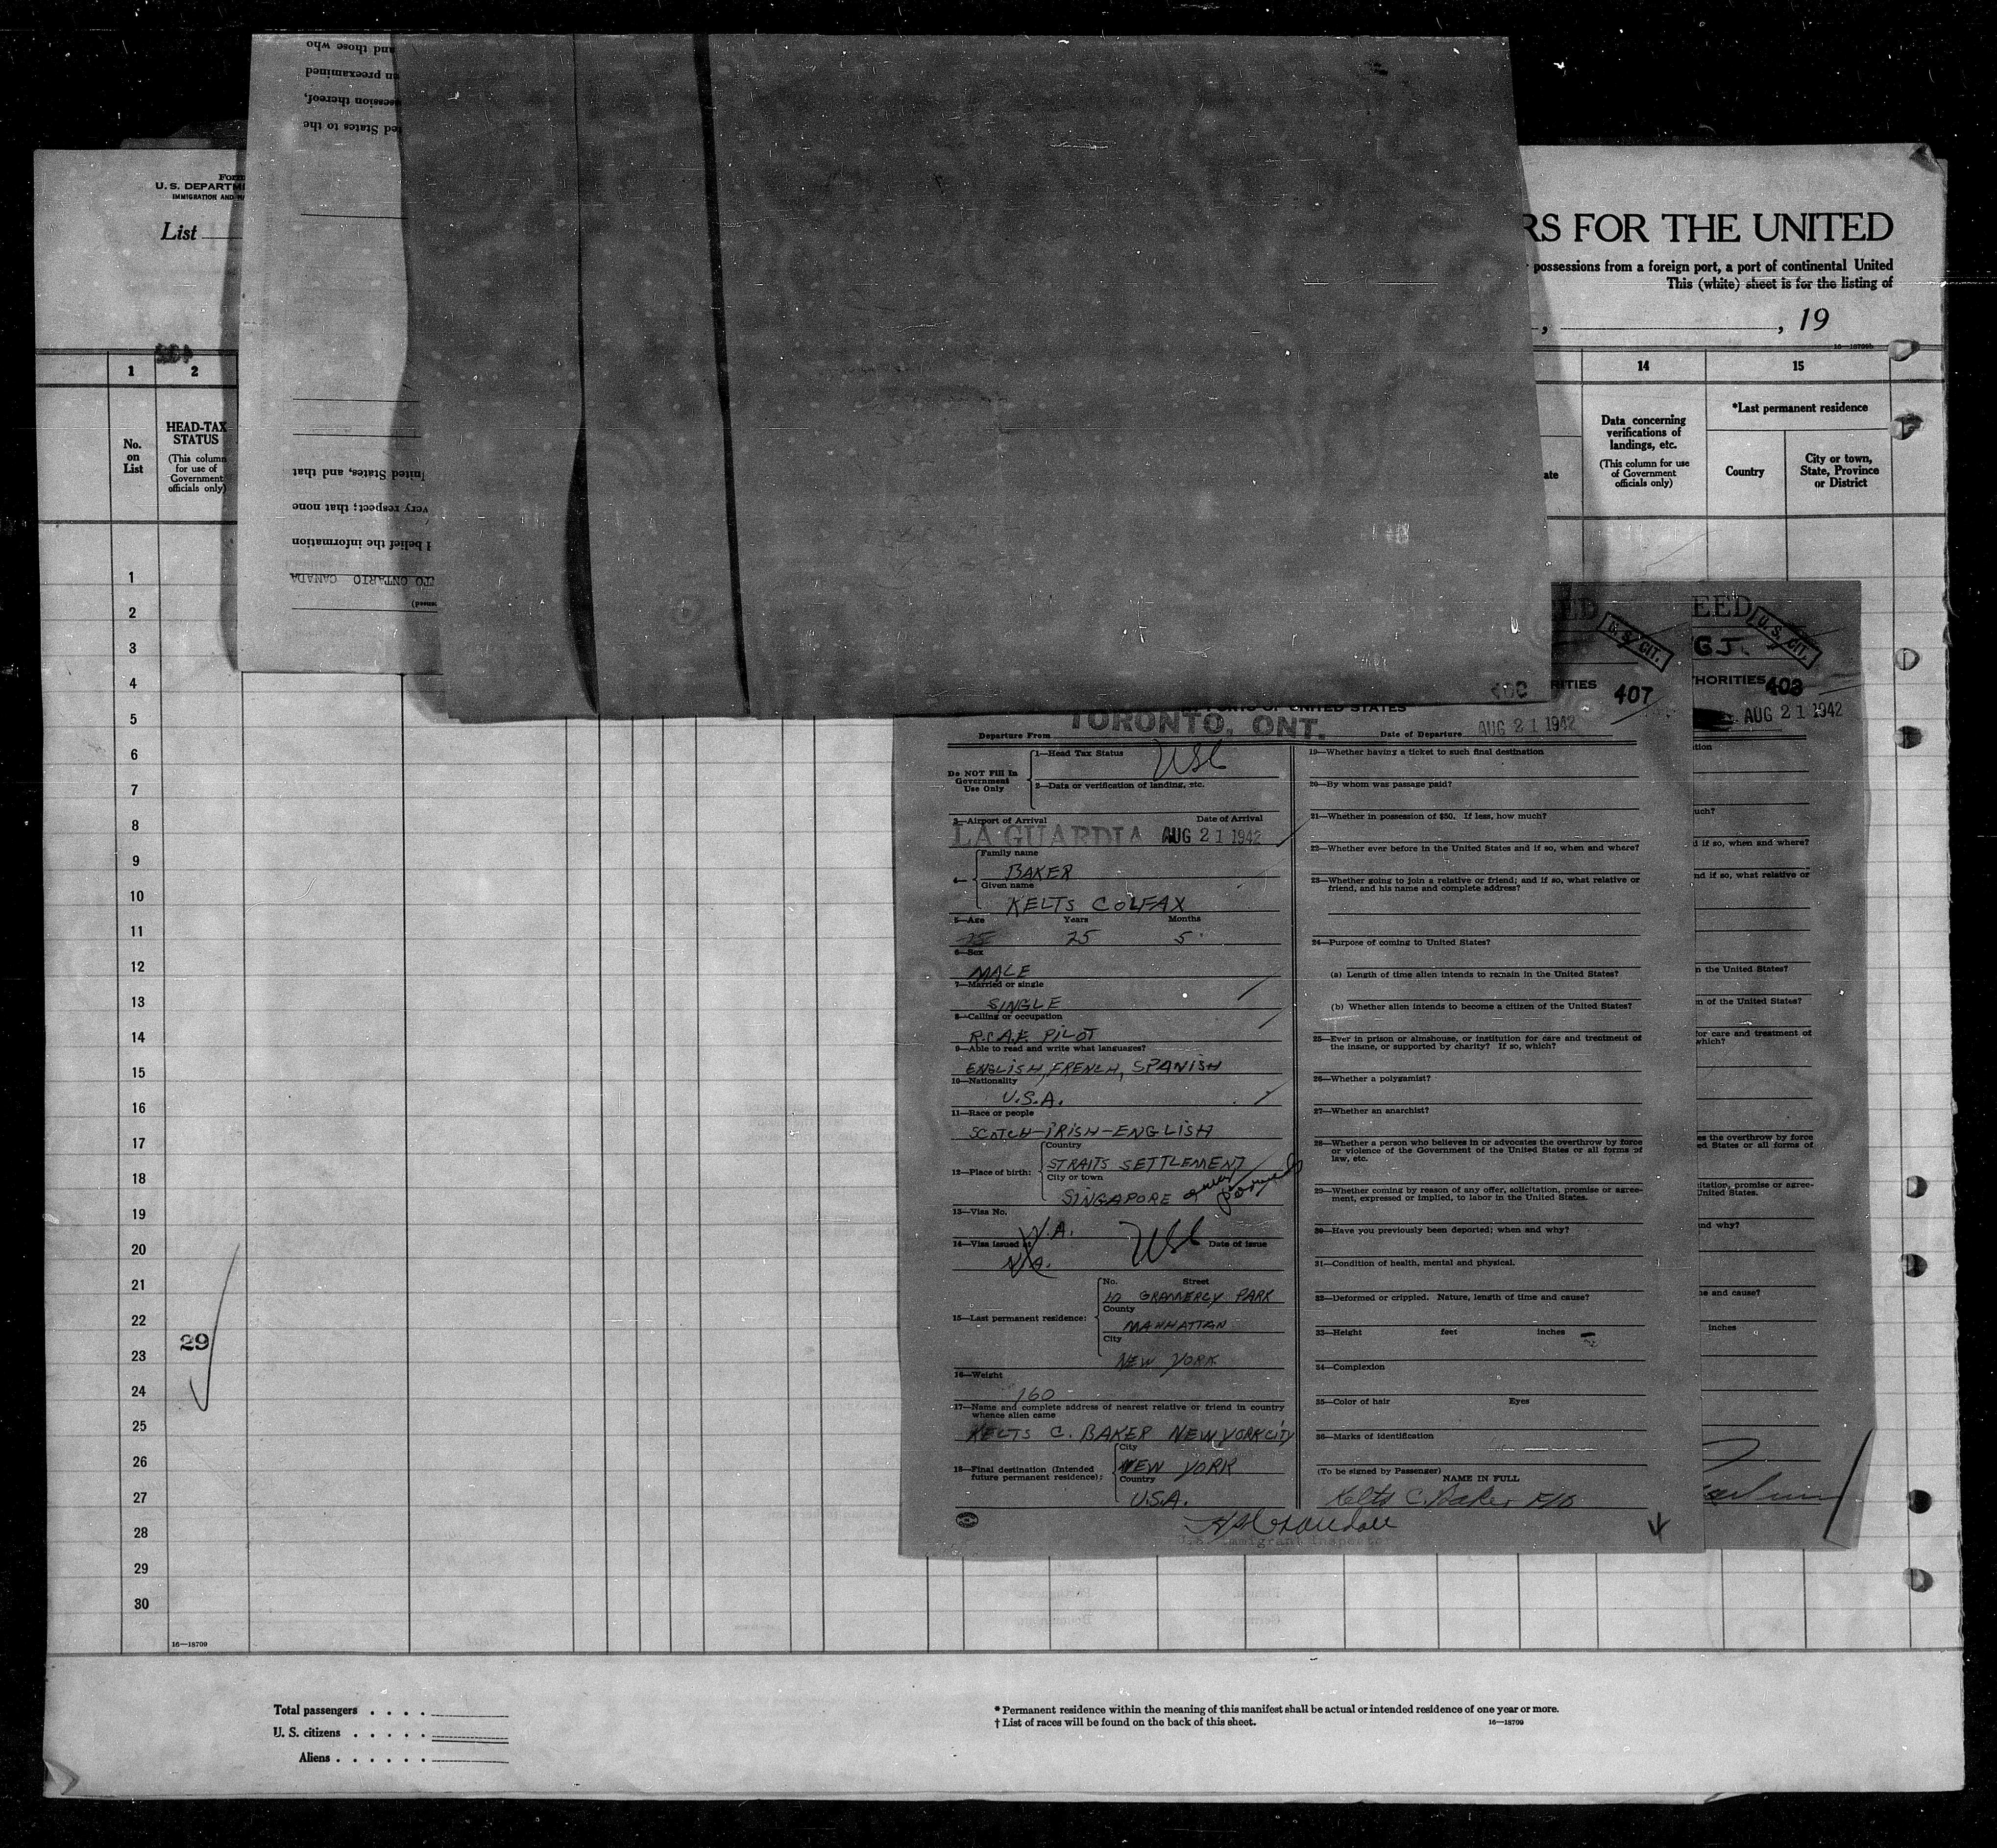 U. S. DEPARTM
IMMIGRATION AND NA
List
RS FOR THE UNITED
possessions from a foreign port, a port of continental United
This (white) sheet is for the listing of
, 19
16—18709b
and those who
en preexamined
session thereof,
ed States to the
United States, and that
very respect; that none
d belief the information
TO ONTARIO CANADA
1
2
14
15
No.
on
List
HEAD-TAX
STATUS
(This column
for use of
Government
officials only)
ate
Data concerning
verifications of
landings, etc.
(This column for use
of Government
officials only)
*Last permanent residence
Country
City or town,
State, Province
or District
1
2
3
4
5
6
7
8
9
10
11
12
13
14
15
16
17
18
19
20
21
22
23
24
25
26
27
28
29
30
29
16—18709
Total passengers . . . .
U. S. citizens . . . . .
Aliens . . . . . .
* Permanent residence within the meaning of this manifest shall be actual or intended residence of one year or more.
† List of races will be found on the back of this sheet.
16—18709
ED
U. S. CIT.
RITIES 407
UNITED STATES
TORONTO, ONT.
Departure From
Date of Departure AUG 21 1942
Do NOT Fill In
Government
Use Only
1—Head Tax Status USC
2—Data or verification of landing, etc.
3—Airport of Arrival
Date of Arrival
LA GUARDIA AUG 21 1942
4—
Family name
BAKER
Given name
KELTS COLFAX
5—Age Years Months
25 25 5
6—Sex
MALE
7—Married or single
SINGLE
8—Calling or occupation
R.C.A.F. PILOT
9—Able to read and write what languages?
ENGLISH, FRENCH, SPANISH
10—Nationality
U.S.A.
11—Race or people
SCOTCH-IRISH-ENGLISH
12—Place of birth:
Country
STRAITS SETTLEMENT
City or town
SINGAPORE
13—Visa No.
N.A.
14—Visa Issued at
USC Date of Issue
N.A.
15—Last permanent residence:
No. Street
10 GRAMERCY PARK
County
MANHATTAN
City
NEW YORK
16—Weight
160
17—Name and complete address of nearest relative or friend in country
whence alien came
KELTS C. BAKER NEW YORK CITY
18—Final destination (Intended
future permanent residence):
City
NEW YORK
Country
U.S.A.
U.S. Immigrant Inspector
19—Whether having a ticket to such final destination
20—By whom was passage paid?
21—Whether in possession of $50. If less, how much?
22—Whether ever before in the United States and if so, when and where?
23—Whether going to join a relative or friend; and if so, what relative or
friend, and his name and complete address?
24—Purpose of coming to United States?
(a) Length of time alien intends to remain in the United States?
(b) Whether alien intends to become a citizen of the United States?
25—Ever in prison or almshouse, or institution for care and treatment of
the insane, or supported by charity? If so, which?
26—Whether a polygamist?
27—Whether an anarchist?
28—Whether a person who believes in or advocates the overthrow by force
or violence of the Government of the United States or all forms of
law, etc.
29—Whether coming by reason of any offer, solicitation, promise or agree-
ment, expressed or implied, to labor in the United States.
30—Have you previously been deported; when and why?
31—Condition of health, mental and physical.
32—Deformed or crippled. Nature, length of time and cause?
33—Height feet inches
34—Complexion
35—Color of hair Eyes
36—Marks of identification
(To be signed by Passenger)
NAME IN FULL
Kelts C. Baker F/O
EED
U. S. CIT.
GJ.
THORITIES 408
AUG 21 1942
ation
uch?
d if so, when and where?
nd if so, what relative or
n the United States?
n of the United States?
for care and treatment of
which?
es the overthrow by force
ed States or all forms of
itation, promise or agree-
United States.
nd why?
ne and cause?
inches